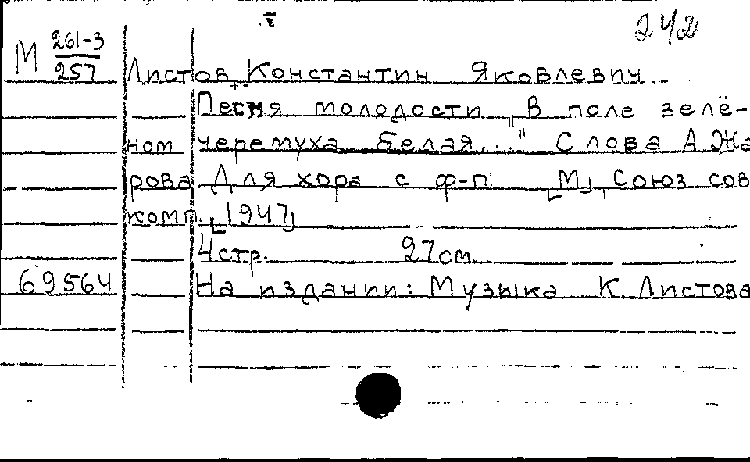 242
М 261-3
257
Листов, Константин Яковлевич.
Песня молодости „В поле зелё-
ном черемуха белая..." Слова А. Жа
рова Для хора с ф-п [М], Союз сов
комп., [1947]
4 стр. 27 см.
69564
На издании: Музыка К. Листова